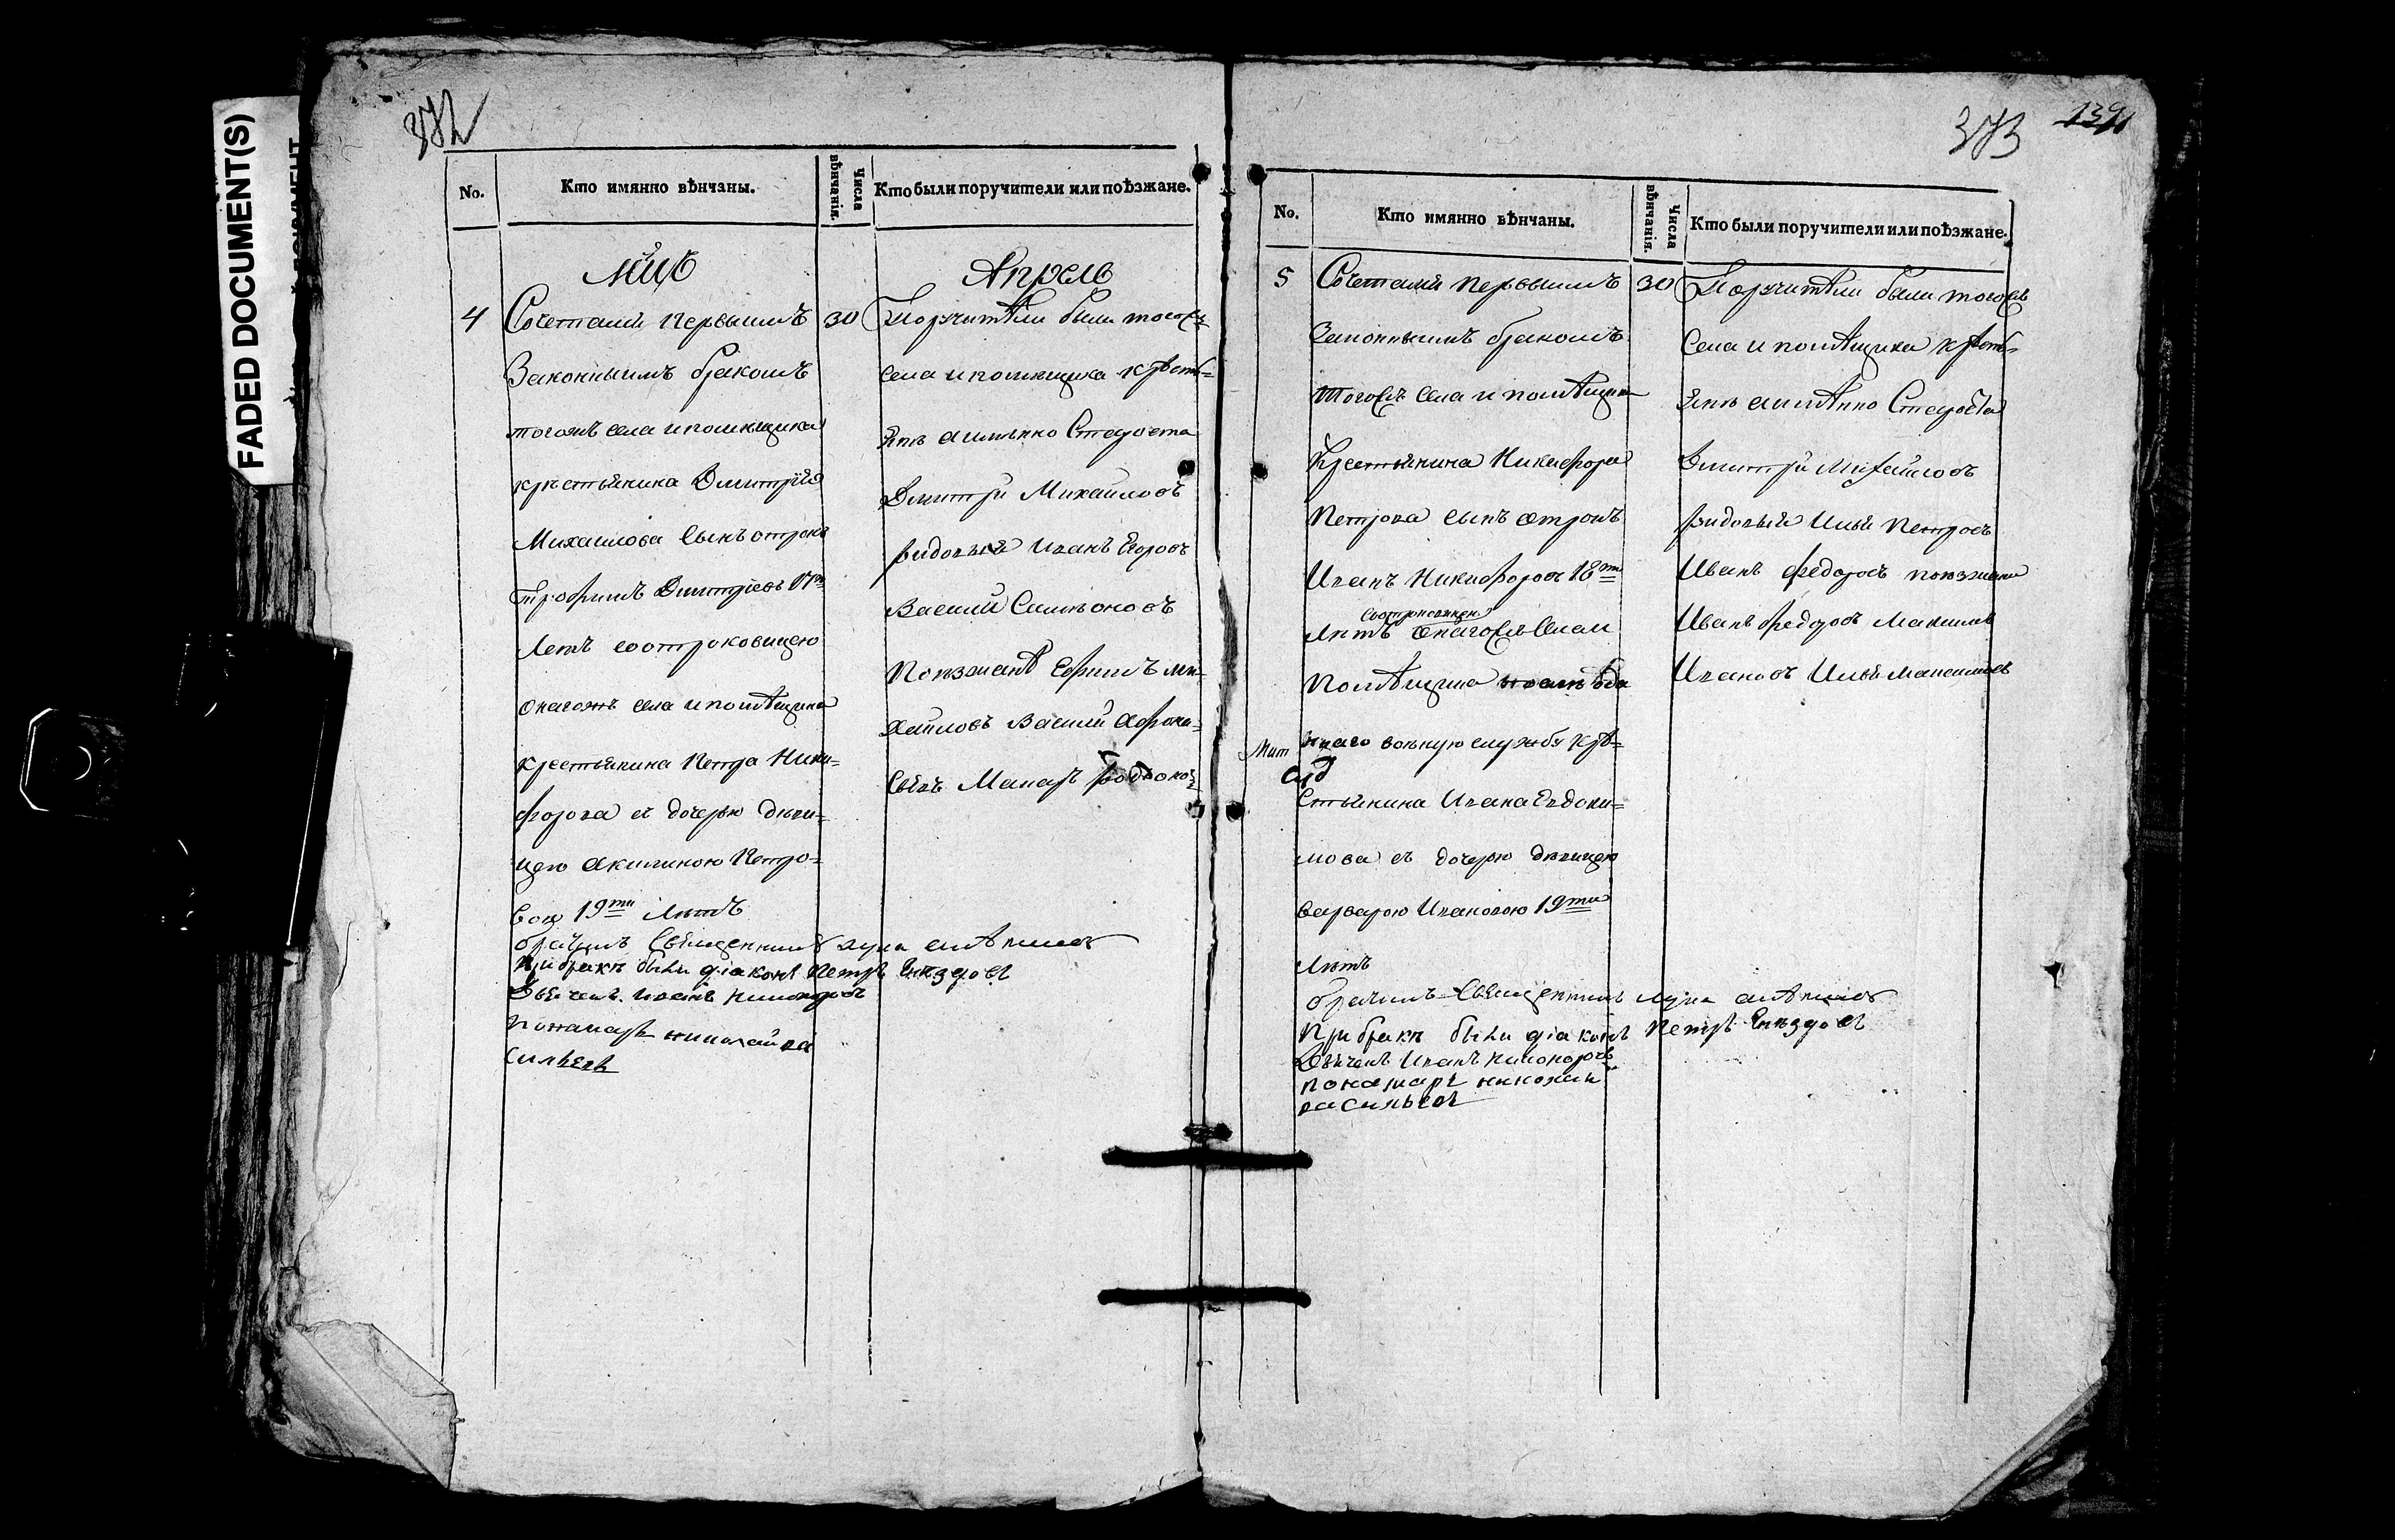 FADED DOCUMENT(S)
372
No.
Кто имянно вѣнчаны.
Числа вѣнчанія.
Кто были поручители или поѣзжане.
Мцъ Апрель
4 Сочетались первымъ 30
Законнымъ бракомъ
тогожъ села и помѣщика
крѣстьянина Димитрія
Михаилова сынъ отрокъ
Трофимъ Дмитріевъ
летъ соотроковицею
онагожъ села и помѣщика
крестьянина Петра Ники=
форова съ дочерью дѣви=
цею Акилиною Петро=
вою 19ти лѣтъ
Поручители были тогожъ
села и помѣщика крѣсть=
яне аимѣнно Староста
Дмитрій Михаиловъ
рядовыя Иванъ Егоровъ
Василій Симионовъ
Поѣзжанѣ Ефимъ Ми=
хаиловъ Василій Афона=
сьевъ Макаръ
брачилъ Священникъ Лука
при бракѣ были діаконъ Петръ Гнездовъ
Дьячекъ Иванъ Никоноровъ
Понамарь николай ва
сильевъ
373
139
No.
Кто имянно вѣнчаны.
Числа вѣнчанія.
Кто были поручители или поѣзжане.
5 Сочетались первымъ 30
Законнымъ бракомъ
тогожъ села и помѣщика
Крестьянина Никифора
Петрова сынъ отрокъ
Иванъ Никифоровъ 18ти
лѣтъ онагожъ села и
помѣщика
военную службу крѣ=
стьянина Ивана Евдоки=
мова съ дочерью дѣвицею
варварою Ивановою 19ти
лѣтъ
Поручители были тогожъ
села и помѣщика крѣсть=
янѣ аимѣнно Староста
Дмитрій Михаиловъ
рядовыя Илья Петровъ
Иванъ Федоровъ поѣзжани
Иванъ Федоровъ Максимъ
Ивановъ Илья Максимовъ
брачилъ Священникъ Лука
при бракѣ были діаконъ Петръ Гнездовъ
Дьячекъ Иванъ Никоноровъ
понамарь николаи
васильевъ